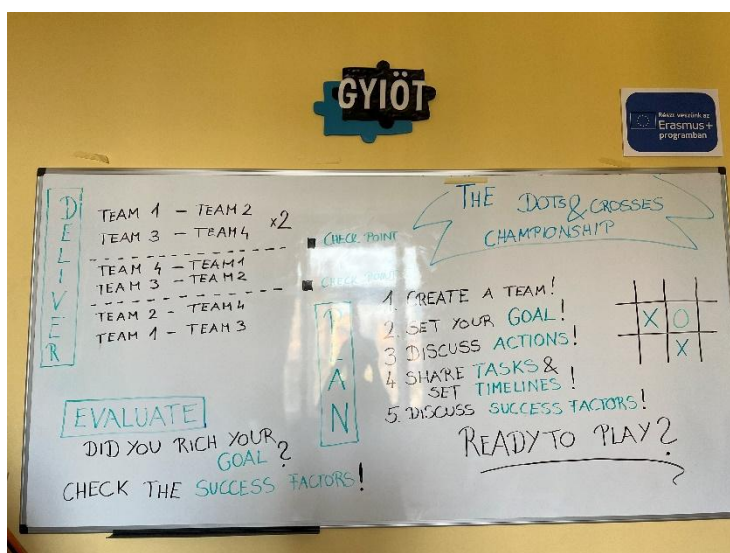 GYIÖT
Részt veszünk az
Erasmus+
programban
THE DOTS & CROSSES
CHAMPIONSHIP
DELIVER
TEAM 1 - TEAM 2
TEAM 3 - TEAM 4
x2
CHECK POINT
TEAM 4 - TEAM 1
TEAM 3 - TEAM 2
CHECK POINT
TEAM 2 - TEAM 4
TEAM 1 - TEAM 3
PLAN
1. CREATE A TEAM!
2. SET YOUR GOAL!
3 DISCUSS ACTIONS!
4 SHARE TASKS &
SET TIMELINES!
5. DISCUSS SUCCESS FACTORS!
X O
X
READY TO PLAY?
EVALUATE
DID YOU RICH YOUR
GOAL?
CHECK THE SUCCESS FACTORS!